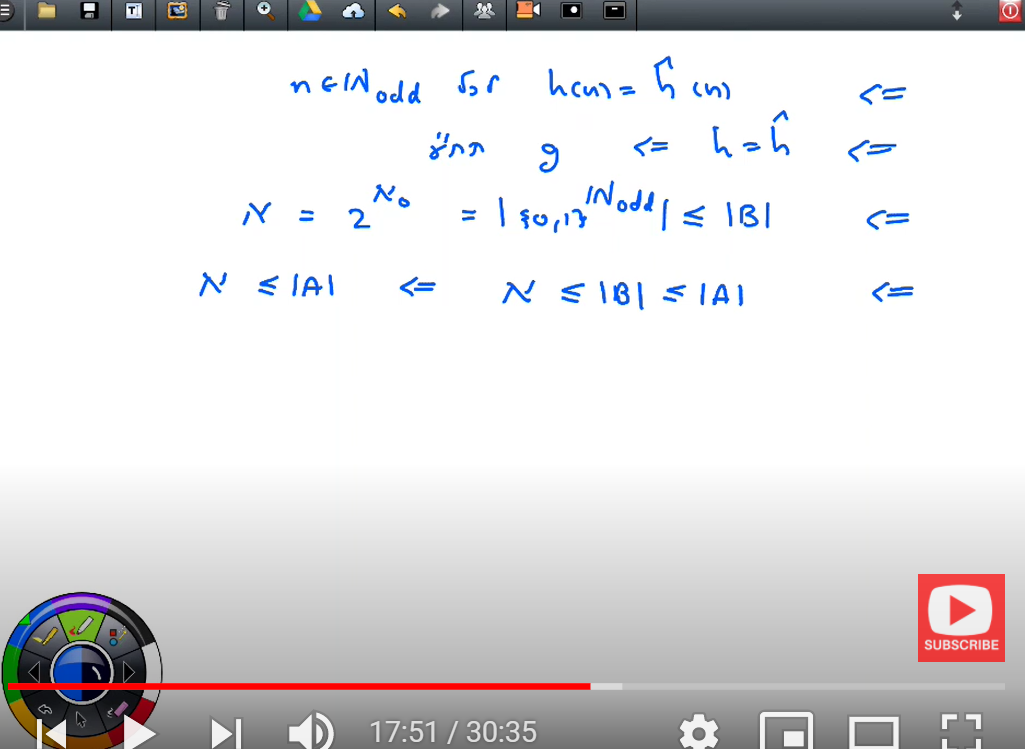 n ∈ ℕ_odd לכל h(n) = ĥ(n) <=
חח"ע g <= h = ĥ <=
ℵ = 2^ℵ₀ = |{0,1}^ℕ_odd| ≤ |B| <=
ℵ ≤ |A| <= ℵ ≤ |B| ≤ |A| <=
SUBSCRIBE
17:51 / 30:35